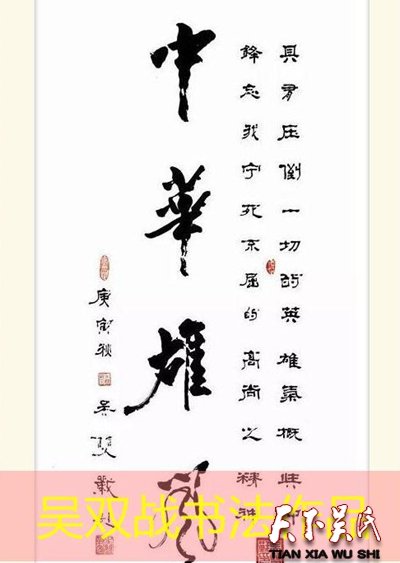 具有压倒一切的英雄氣概
锋忘我宁死不屈的高尚之精神
中華雄
庚寅秋 吴双战
吴双战书法作品
天下吴氏
TIAN XIA WU SHI